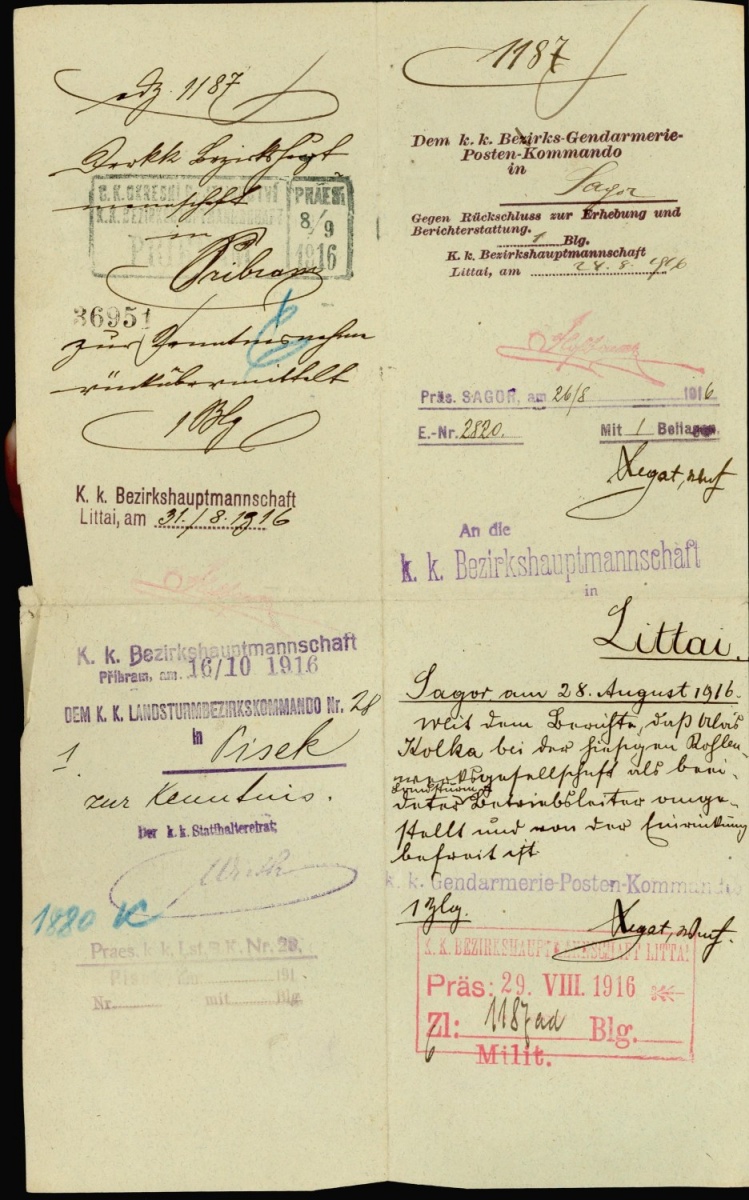 adz. 1187
Der k.k. Bezirkshaupt
mannschaft
in
Pribram
C.K. OKRESNÍ
PRÄES.
8/9
1916
36951
zur Kenntnisnahme
rückübermittelt
1 Blg
K. k. Bezirkshauptmannschaft
Littai, am 31./8. 1916
K. k. Bezirkshauptmannschaft
Přibram, am 16/10 1916
DEM K. K. LANDSTURMBEZIRKSKOMMANDO Nr. 28
in
1 Pisek
zur Kenntnis.
Der k. k. Statthaltereirat:
1880 K
Praes. k. k. Lst. B. K. Nr. 28.
Pisek, am 191
Nr. mit Blg.
1187
Dem k. k. Bezirks-Gendarmerie-
Posten-Kommando
in
Sagor
Gegen Rückschluss zur Erhebung und
Berichterstattung.
1 Blg.
K. k. Bezirkshauptmannschaft
Littai, am 24. 8. 1916
Präs. SAGOR, am 26/8 1916
E.-Nr. 2820. Mit 1 Beilagen.
Legat, Wmf
An die
k. k. Bezirkshauptmannschaft
in
Littai.
Sagor am 28. August 1916.
mit dem Berichte, daß Alois
Kolka bei der hiesigen Kohlen-
werksgesellschaft als beei-
deter Betriebsleiter ange-
stellt und von der Einrückung
befreit ist
k. k. Gendarmerie-Posten-Kommando
1 Blg. Legat, Wmf.
K. K. BEZIRKSHAUPTMANNSCHAFT LITTAI
Präs: 29. VIII. 1916
Zl: 1187 ad Blg.
6
Milit.